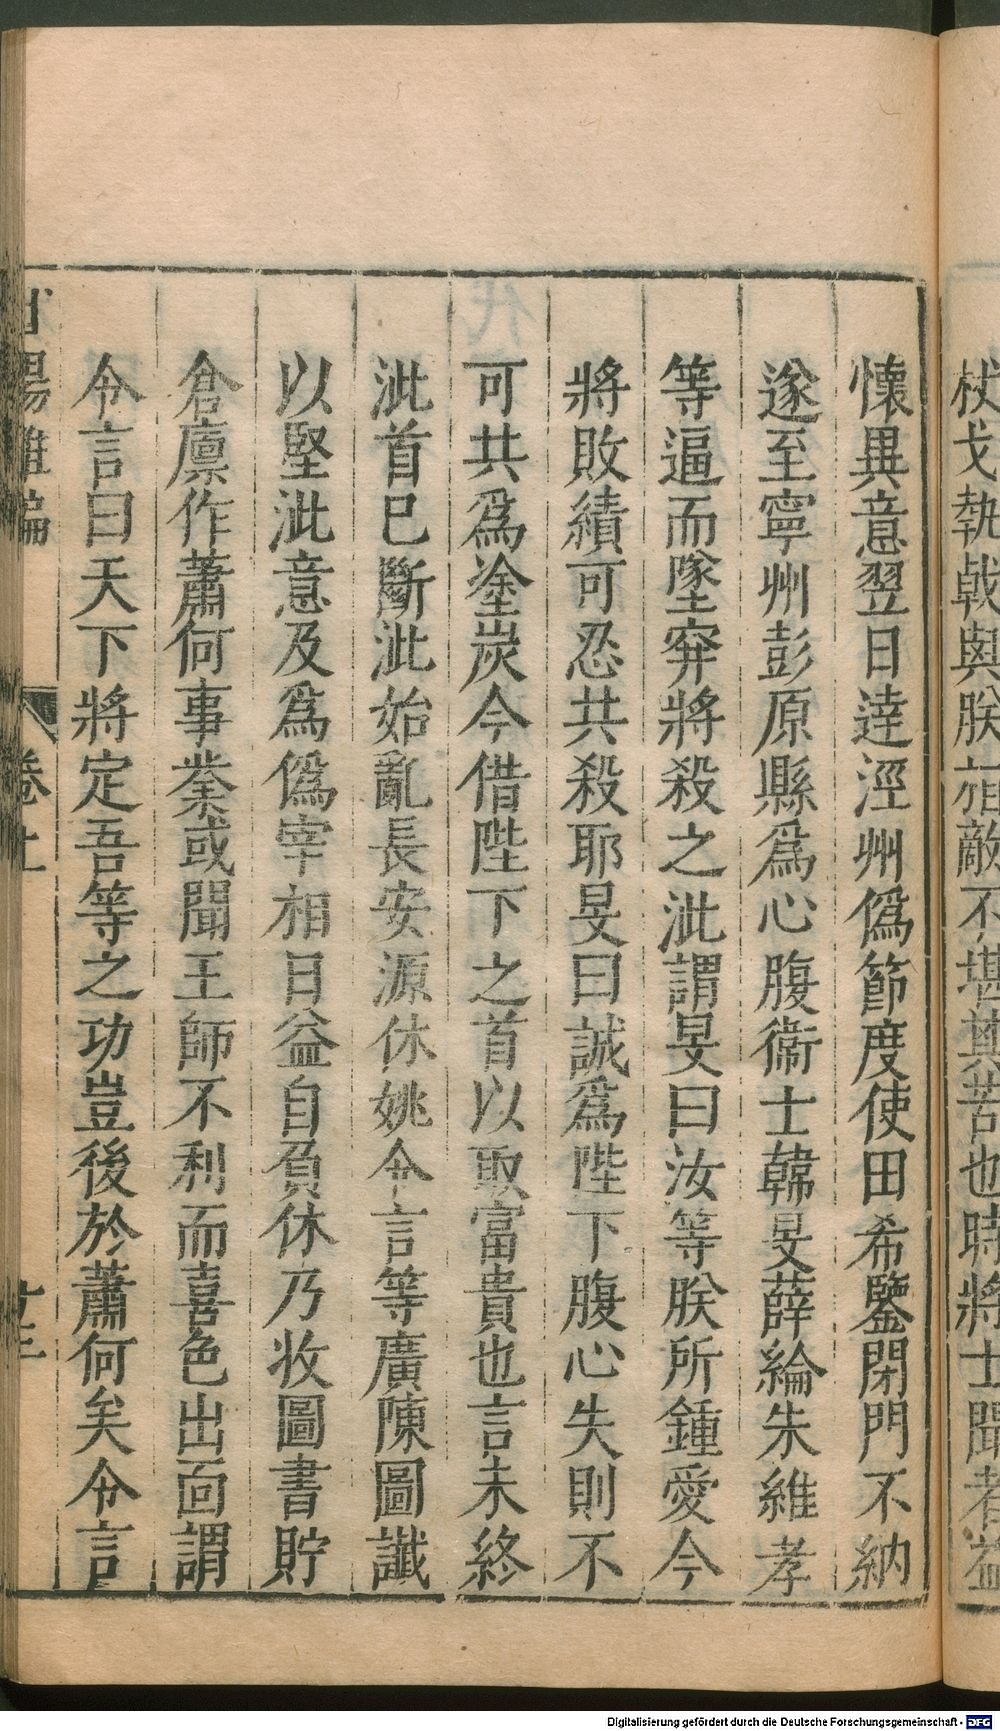 杖戈執戟與朕前敵不堪其苦也時將士聞者益
懷異意翌日達涇州僞節度使田希鑒閉門不納
遂至寧州彭原縣爲心腹衞士韓旻薛綸朱維孝
等逼而墜穽將殺之泚謂旻曰汝等朕所鍾愛今
將敗績可忍共殺耶旻曰誠爲陛下腹心失則不
可共爲塗炭今借陛下之首以取富貴也言未終
泚首巳斷泚始亂長安源休姚令言等廣陳圖讖
以堅泚意及爲僞宰相日益自負休乃收圖書貯
倉廩作蕭何事業或聞王師不利而喜色出面謂
令言曰天下將定吾等之功豈後於蕭何矣令言
杜陽雜編 卷上 廿三
Digitalisierung gefördert durch die Deutsche Forschungsgemeinschaft - DFG